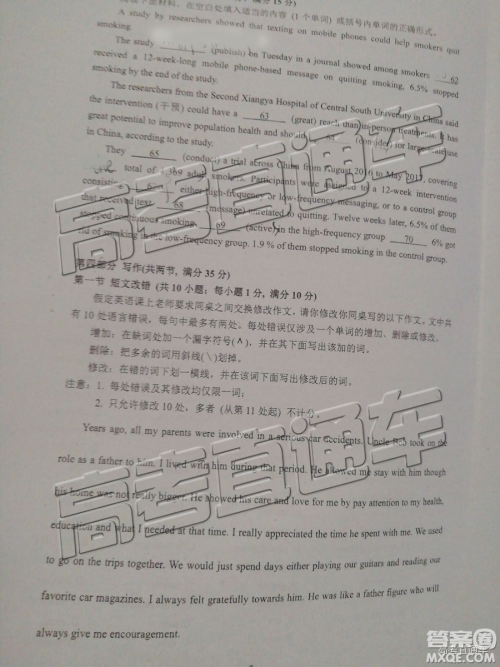 阅读下面材料，在空白处填入适当的内容（1 个单词）或括号内单词的正确形式。
A study by researchers showed that texting on mobile phones could help smokers quit
smoking.
The study (publish) on Tuesday in a journal showed among smokers 62
received a 12-week-long mobile phone-based message on quitting smoking, 6.5% stopped
smoking by the end of the study.
The researchers from the Second Xiangya Hospital of Central South University in China said
the intervention (干预) could have a 63 (great) reach than in-person treatments. It has
great potential to improve population health and should for large-scale use
in China, according to the study.
They 65 (conduct) a trial across China from August 2016 to May 2017, covering
total of 1369 adult smokers. Participants were assigned to a 12-week intervention
either high-frequency or low-frequency messaging, or to a control group
that received text 68 (message) unrelated to quitting. Twelve weeks later, 6.5% of them
stopped continuous smoking 69 (active) in the high-frequency group 70 6% got
rid of smoking in the low-frequency group. 1.9 % of them stopped smoking in the control group.
第四部分 写作(共两节, 满分 35 分)
第一节 短文改错 (共 10 小题; 每小题 1 分, 满分 10 分)
假定英语课上老师要求同桌之间交换修改作文，请你修改你同桌写的以下作文。文中共
有 10 处语言错误，每句中最多有两处。每处错误仅涉及一个单词的增加、删除或修改。
增加：在缺词处加一个漏字符号(∧)，并在其下面写出该加的词。
删除：把多余的词用斜线(\)划掉。
修改：在错的词下划一横线，并在该词下面写出修改后的词。
注意：1. 每处错误及其修改均仅限一词；
2. 只允许修改 10 处，多者 (从第 11 处起) 不计分。
Years ago, all my parents were involved in a serious car accidents. Uncle Rob took on the
role as a father to him. I lived with him during that period. He allowed me stay with him though
his home was not really bigger. He showed his care and love for me by pay attention to my health,
education and what I needed at that time. I really appreciated the time he spent with me. We used
to go on the trips together. We would just spend days either playing our guitars and reading our
favorite car magazines. I always felt gratefully towards him. He was like a father figure who will
always give me encouragement.
高考直通车
高考直通车
高考直通车
答案圈
MXQE.COM